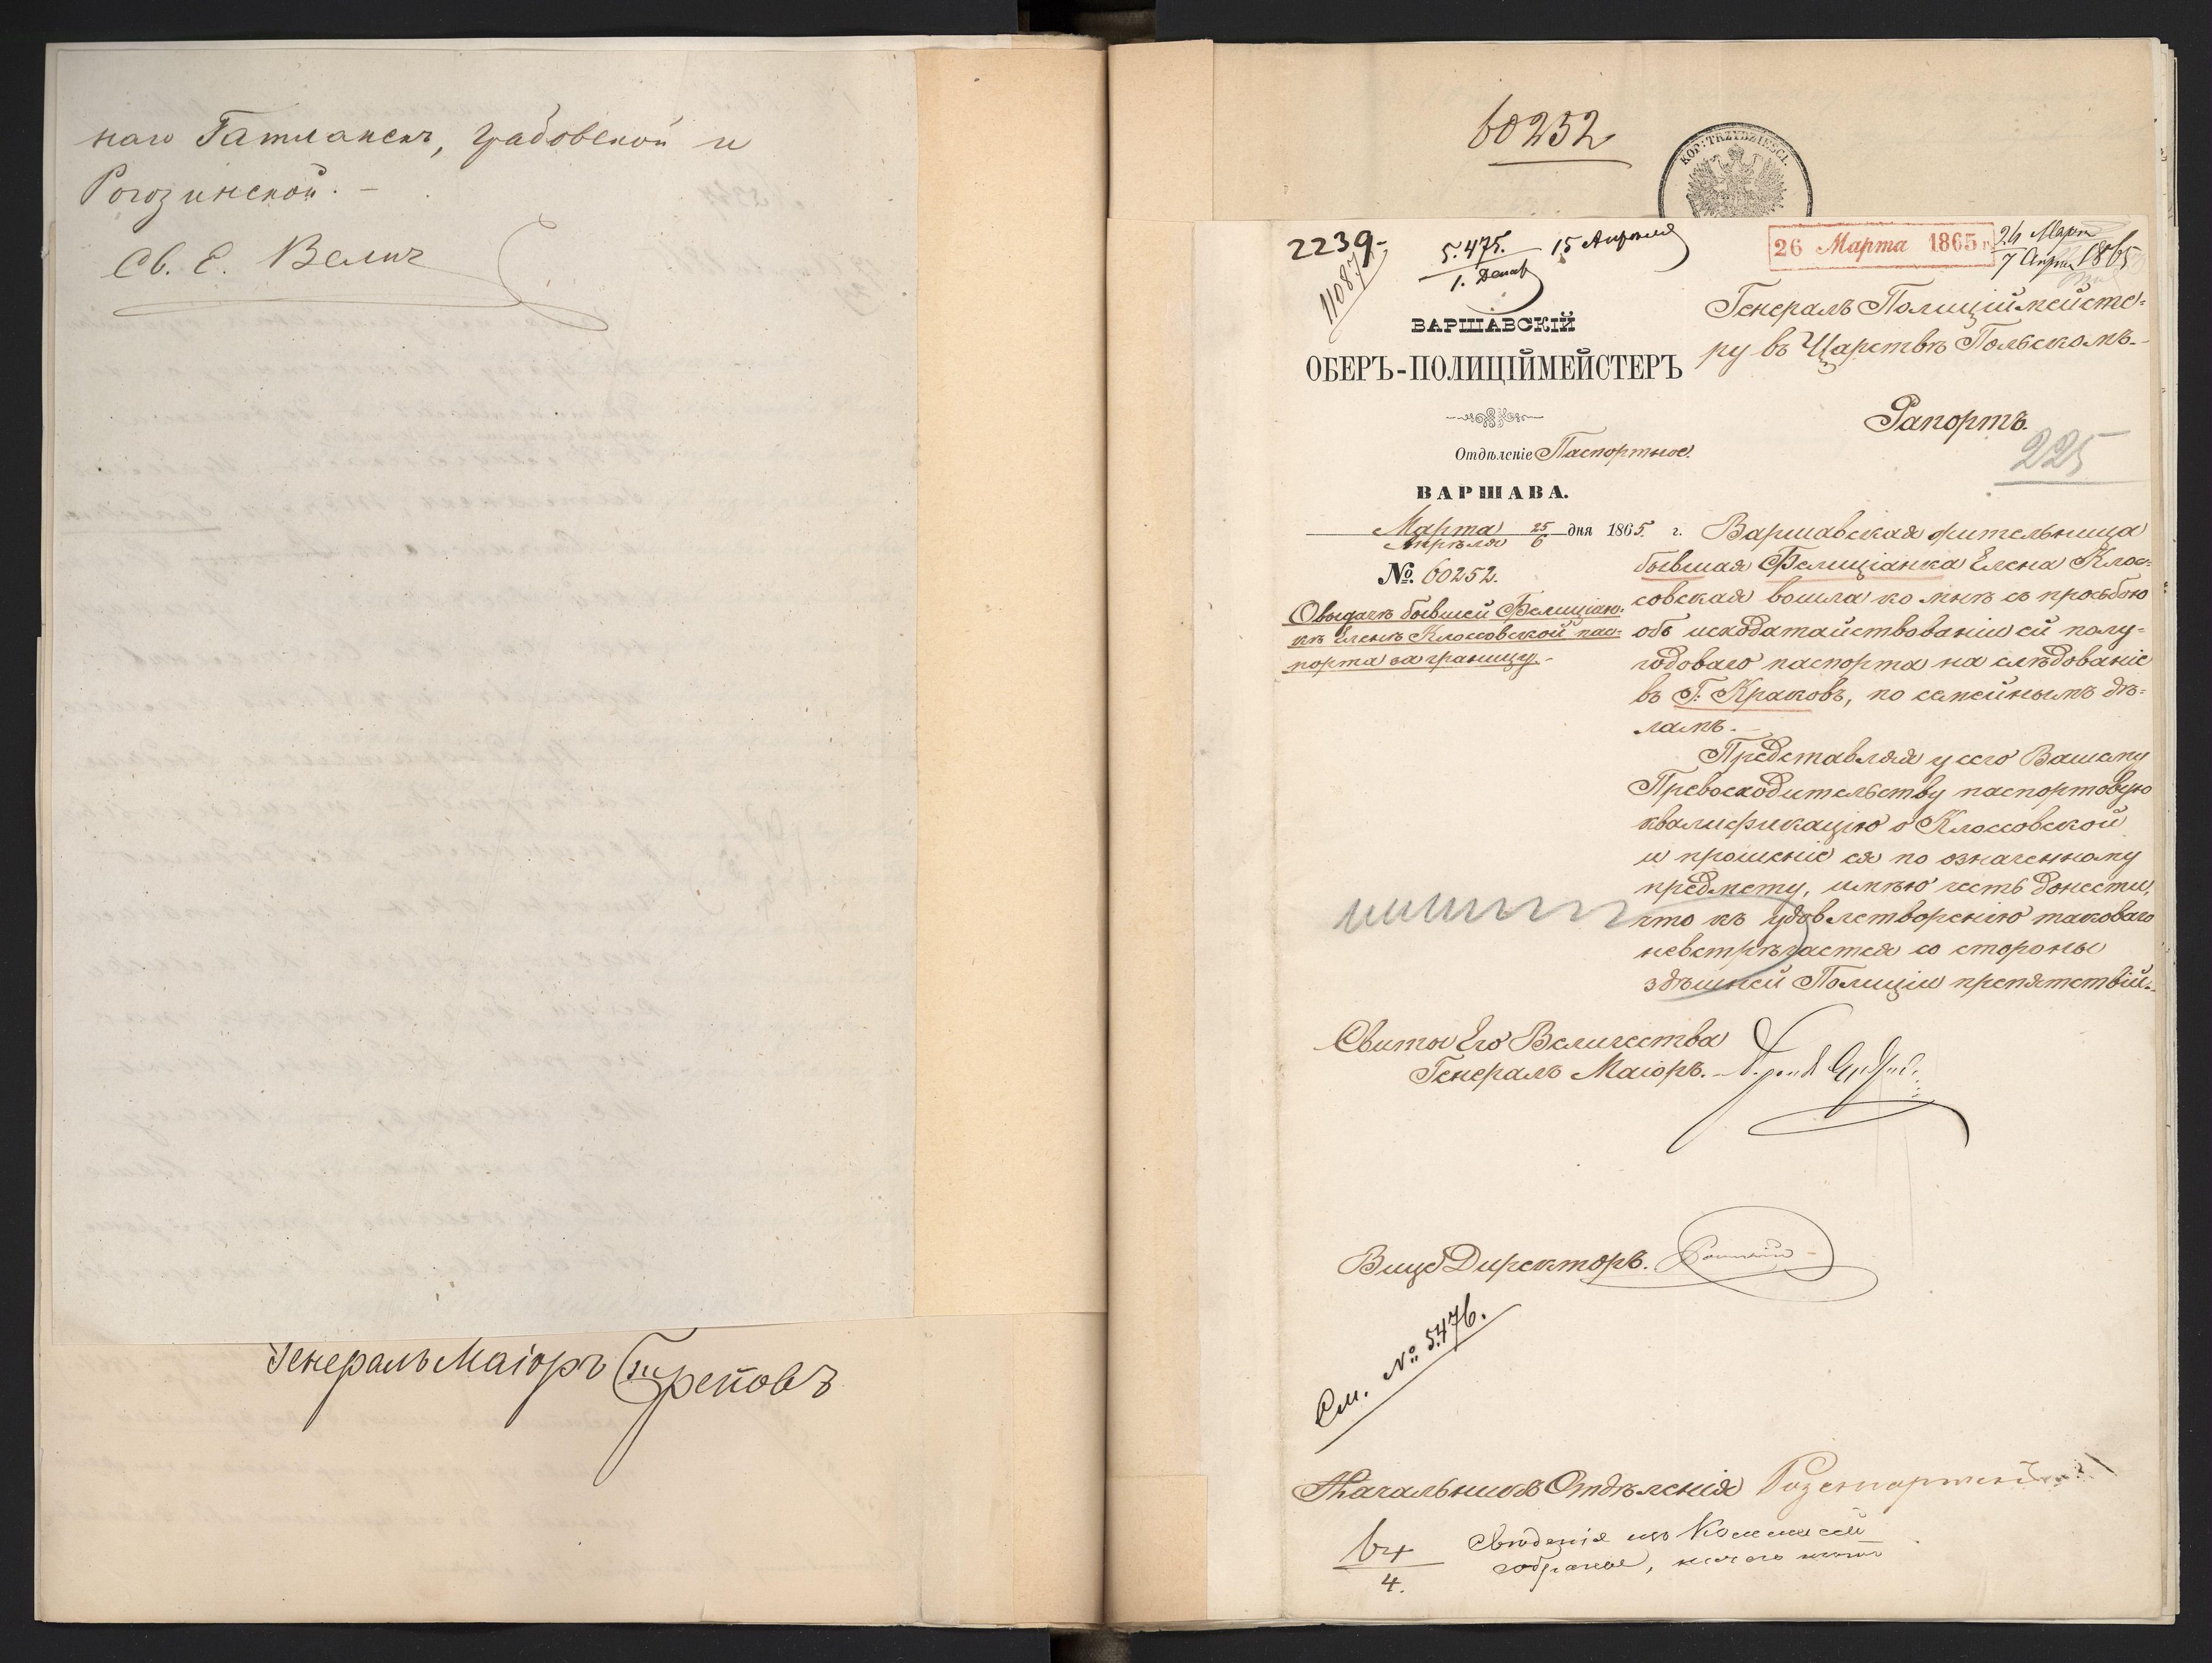 наго Гатманскъ, Грабовской и
Рогозинской. –
Св. Е. Велич
Генералъ Маіоръ Треповъ
60252
KOP: TRZYDZIEŚCI.
2239-
11087
5.475.
15 Апрѣля
1. Декаб
26 Марта 1865 г.
26 Март
7 Апрѣл 1865
ВАРШАВСКІЙ
ОБЕРЪ-ПОЛИЦІЙМЕЙСТЕРЪ
Отдѣленіе Паспортное.
ВАРШАВА.
Марта 25 дня 1865. г.
Апрѣля 6
№. 60252.
О выдачѣ бывшей Фелиціан-
кѣ Еленѣ Клоссовской пас-
порта за границу. -
Генералъ Полиціймейсте-
ру въ Царствѣ Польскомъ.-
Рапортъ.
225
Варшавская жительница
бывшая Фелиціанка Елена Клос-
совская вошла ко мнѣ съ просьбою
объ исходатайствованіи ей полу-
годоваго паспорта на слѣдованіе
въ Г. Краковъ, по семейнымъ дѣ-
ламъ. -
Представляя у сего Вашему
Превосходительству паспортовую
квалификацію о Клоссовской
и прошеніе ея по означенному
предмету, имѣю честь донести,
что къ удовлетворенію таковаго
невстрѣчается со стороны
здѣшней Полиціи препятствій.-
Свиты Его Величества
Генералъ Маіоръ.
Вице Директоръ.
См. №. 5476.
Начальникъ Отдѣленія
4.
Свѣденія изъ Коммисій
собраны,